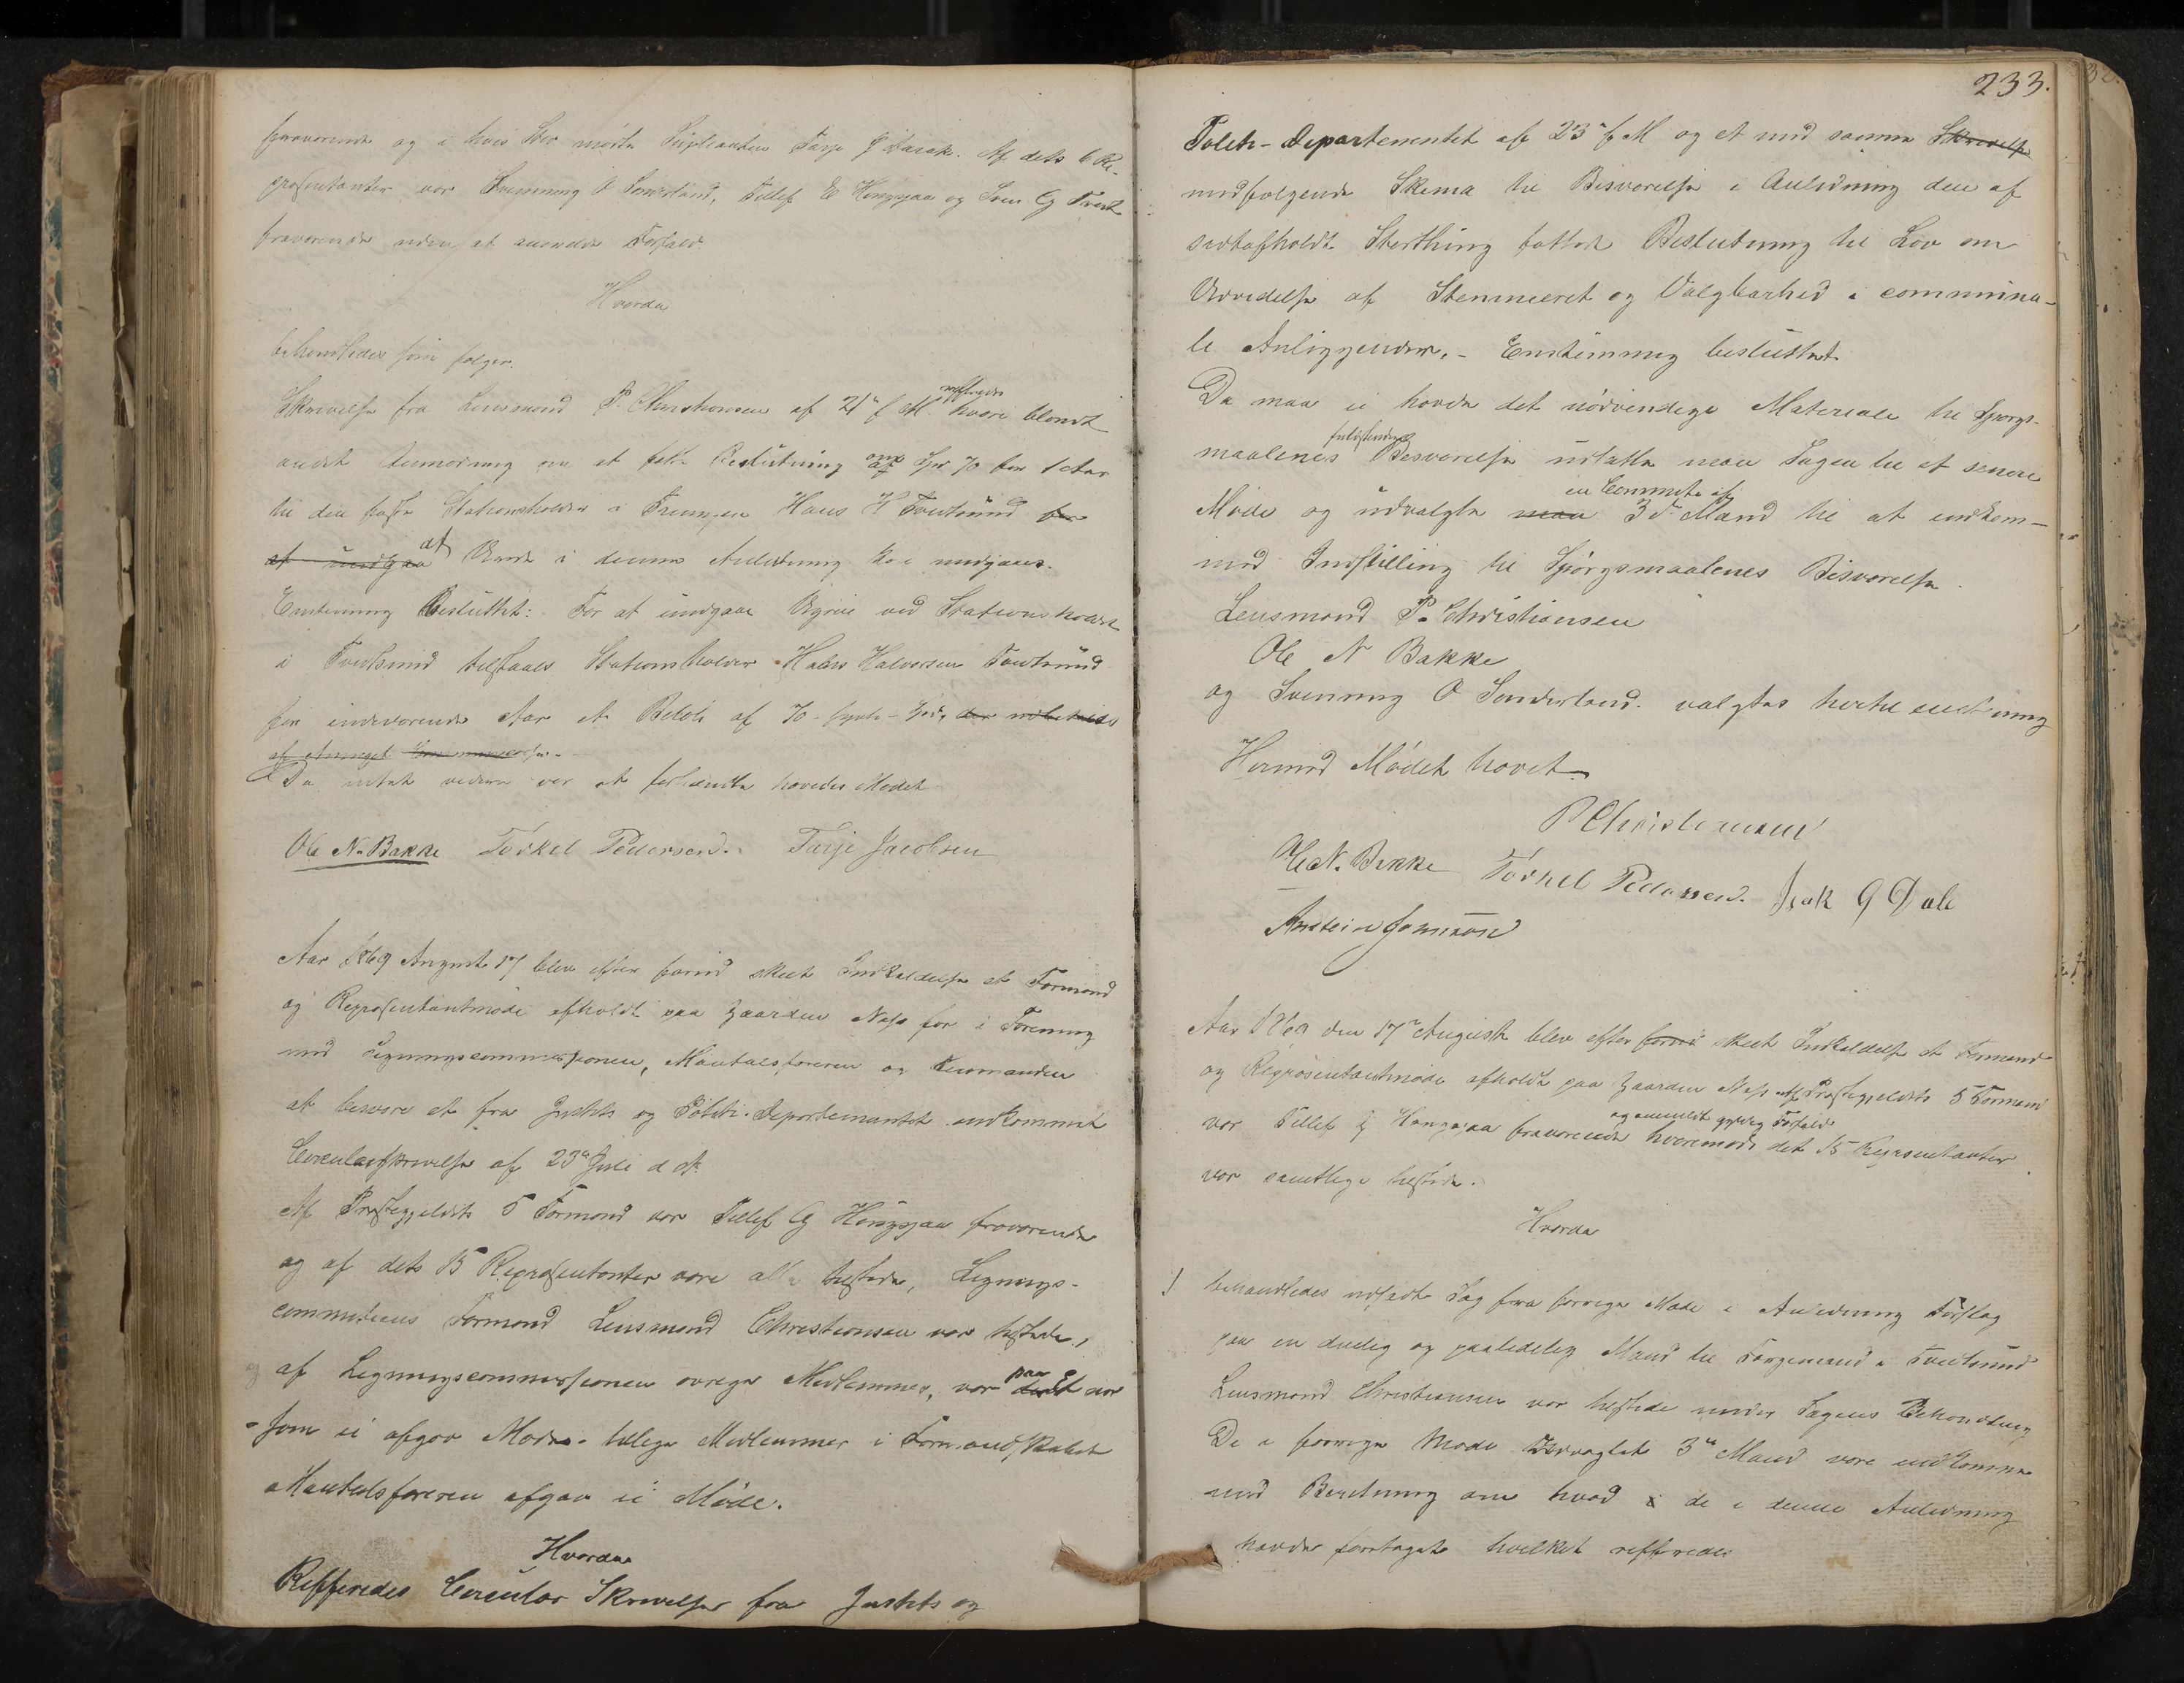 fraværende og i hvis Sted mødte Suppleanten Tarje J Aarak. Af dets 6 Re-
præsentanter var Svenning O Sønderland, Tellef E Hengsjaa og Sven G Tveit
fraværende uden at anmelde Forfald
Hvorda
behandledes som følger.
Skrivelse fra Lensmand P. Christiansen af 21de f M. reffredes hvori blandt
andet Anmodning om at fatte Beslutning om Spd 70 for 1 Aar
til den faste Stationsholder i Hans H Tveitsund for
at undgaa at Urede i denne Anledning kan undgaaes.
Enstemmig Besluttet: For at undgaae Ugreie ved Stationsholdet
i Tveitsund tilstaaes Stationsholder Hans Halvorsen Tveitsund
for indeværende Aar et Beløb af 70 - sytti - Spd, der udbetales
af
Da intet videre var at forhandle hævedes Mødet
Ole N. Bakke Torkel Pedersen. Tarje Jacobsen
Aar 1869 August 17 blev efter forud skeet Indkaldelse et Formand
og Repræsentantmøde afholdt paa Gaarden Næs for i Forening
med Ligningscommissionen, Mantalsføreren og Lensmanden
at besvare et fra Justits og Politi-Departementet indkommet
Circulairskrivelse af 23de Juli d A.
Af Præstegjeldets 5 Formænd var Tellef G Hengsjaa fraværende
og af dets 15 Repræsentanter vare alle tilstede, Lignings-
commissions Formand Lensmand Christiansen var tilstede,
af Ligningscommissionen øvrige Medlemmer, var paa Et nær
som ei afgav Møde tillige Medlemmer i Formandskabet
Mantalsføreren afgav ei Møde.
Hvorda
Refferedes Circulær Skrivelse fra Justits og
233.
Politi-Departementet af 23de f M og et med samme Skrivelse
medfølgende Skema til Besvarelse i Anledning den af
sidstafholdte Storthing fattede Beslutning til Lov om
Udvidelse af Stemmeret og Valgbarhed i communa-
le Anliggender. - Enstemmig besluttet.
Da man ei havde det nødvendige Materiale til Spørgs-
maalenes fuldstændige Besvarelse udsatte man Sagen til et senere
Møde og udvalgte man en Committe af 3de Mand til at indkom-
med Indstilling til Spørgsmaalenes Besvarelse.
Lensmand P. Christiansen
Ole N Bakke
og Svenning O Sønderland. valgtes hertil enstemmig
Hermed Mødet hævet.
P Christiansen
Ole N. Bakke Torkel Pedersen. Isak G Dale
Anstein Jamsson
Aar 1869 den 17de August blev efter forud skeet Indkaldelse et Formand-
og Repræsentantmøde afholdt paa Gaarden Næs Af Præstegjeldets 5 Formænd
var Tellef G Hengsjaa fraværende og anmeldt gyldig Forfald hvorimod det 15 Repræsentanter
var samtlige tilstede.
Hvorda
1 behandledes udsadt Sag fra forrige Møde i Anledning Forslag
paa en duelig og paalidelig Mand til Fangemand i Tveitsund
Lensmand Christiansen var tilstede under Sagens Behandling
De i forrige Møde Udvalgte 3de Mand vare indkomne
med Beretning om hvad de i denne Anledning
havde foretaget hvilket refferedes